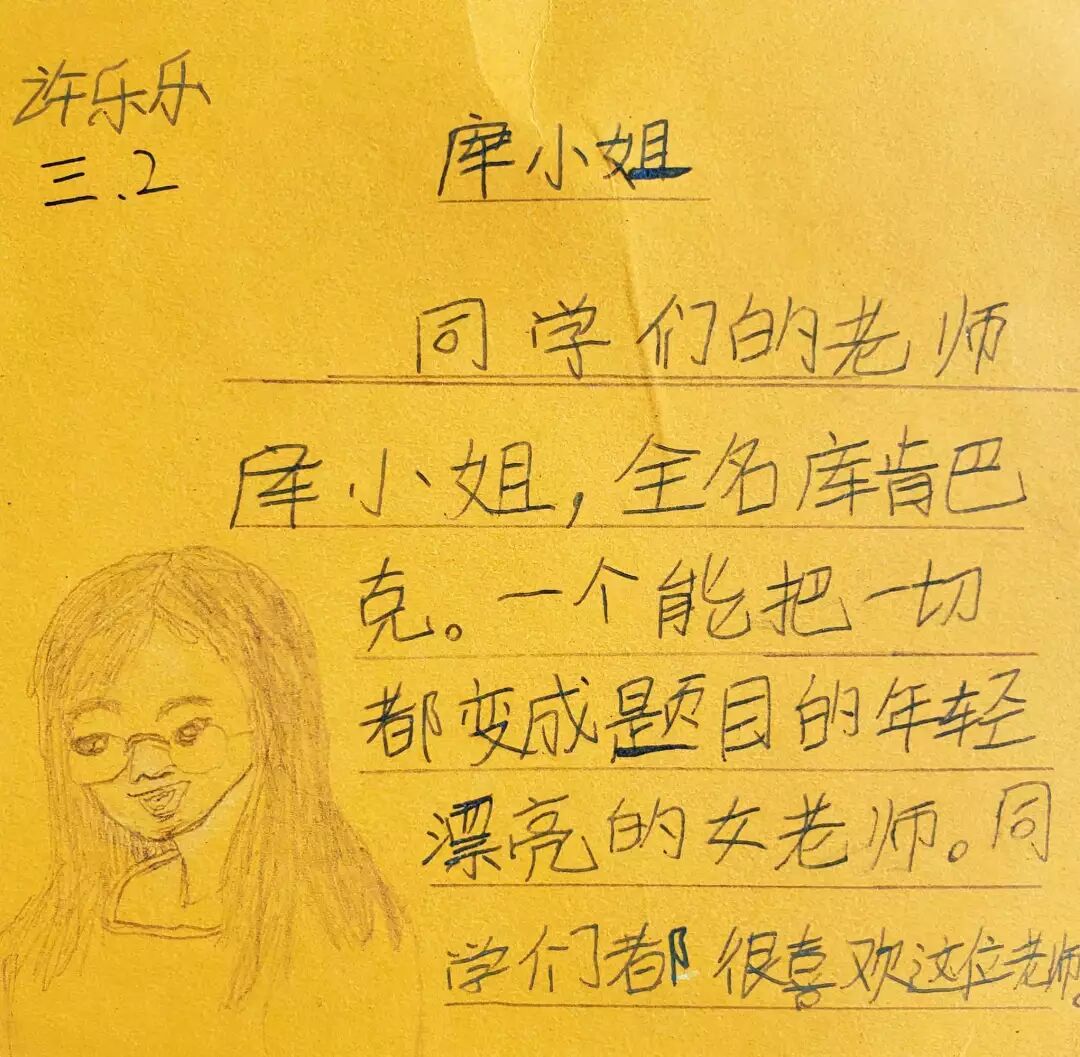 许乐乐
三.2
库小姐
同学们的老师
库小姐，全名库肯巴
克。一个能把一切
都变成题目的年轻
漂亮的女老师。同
学们都很喜欢这位老师。